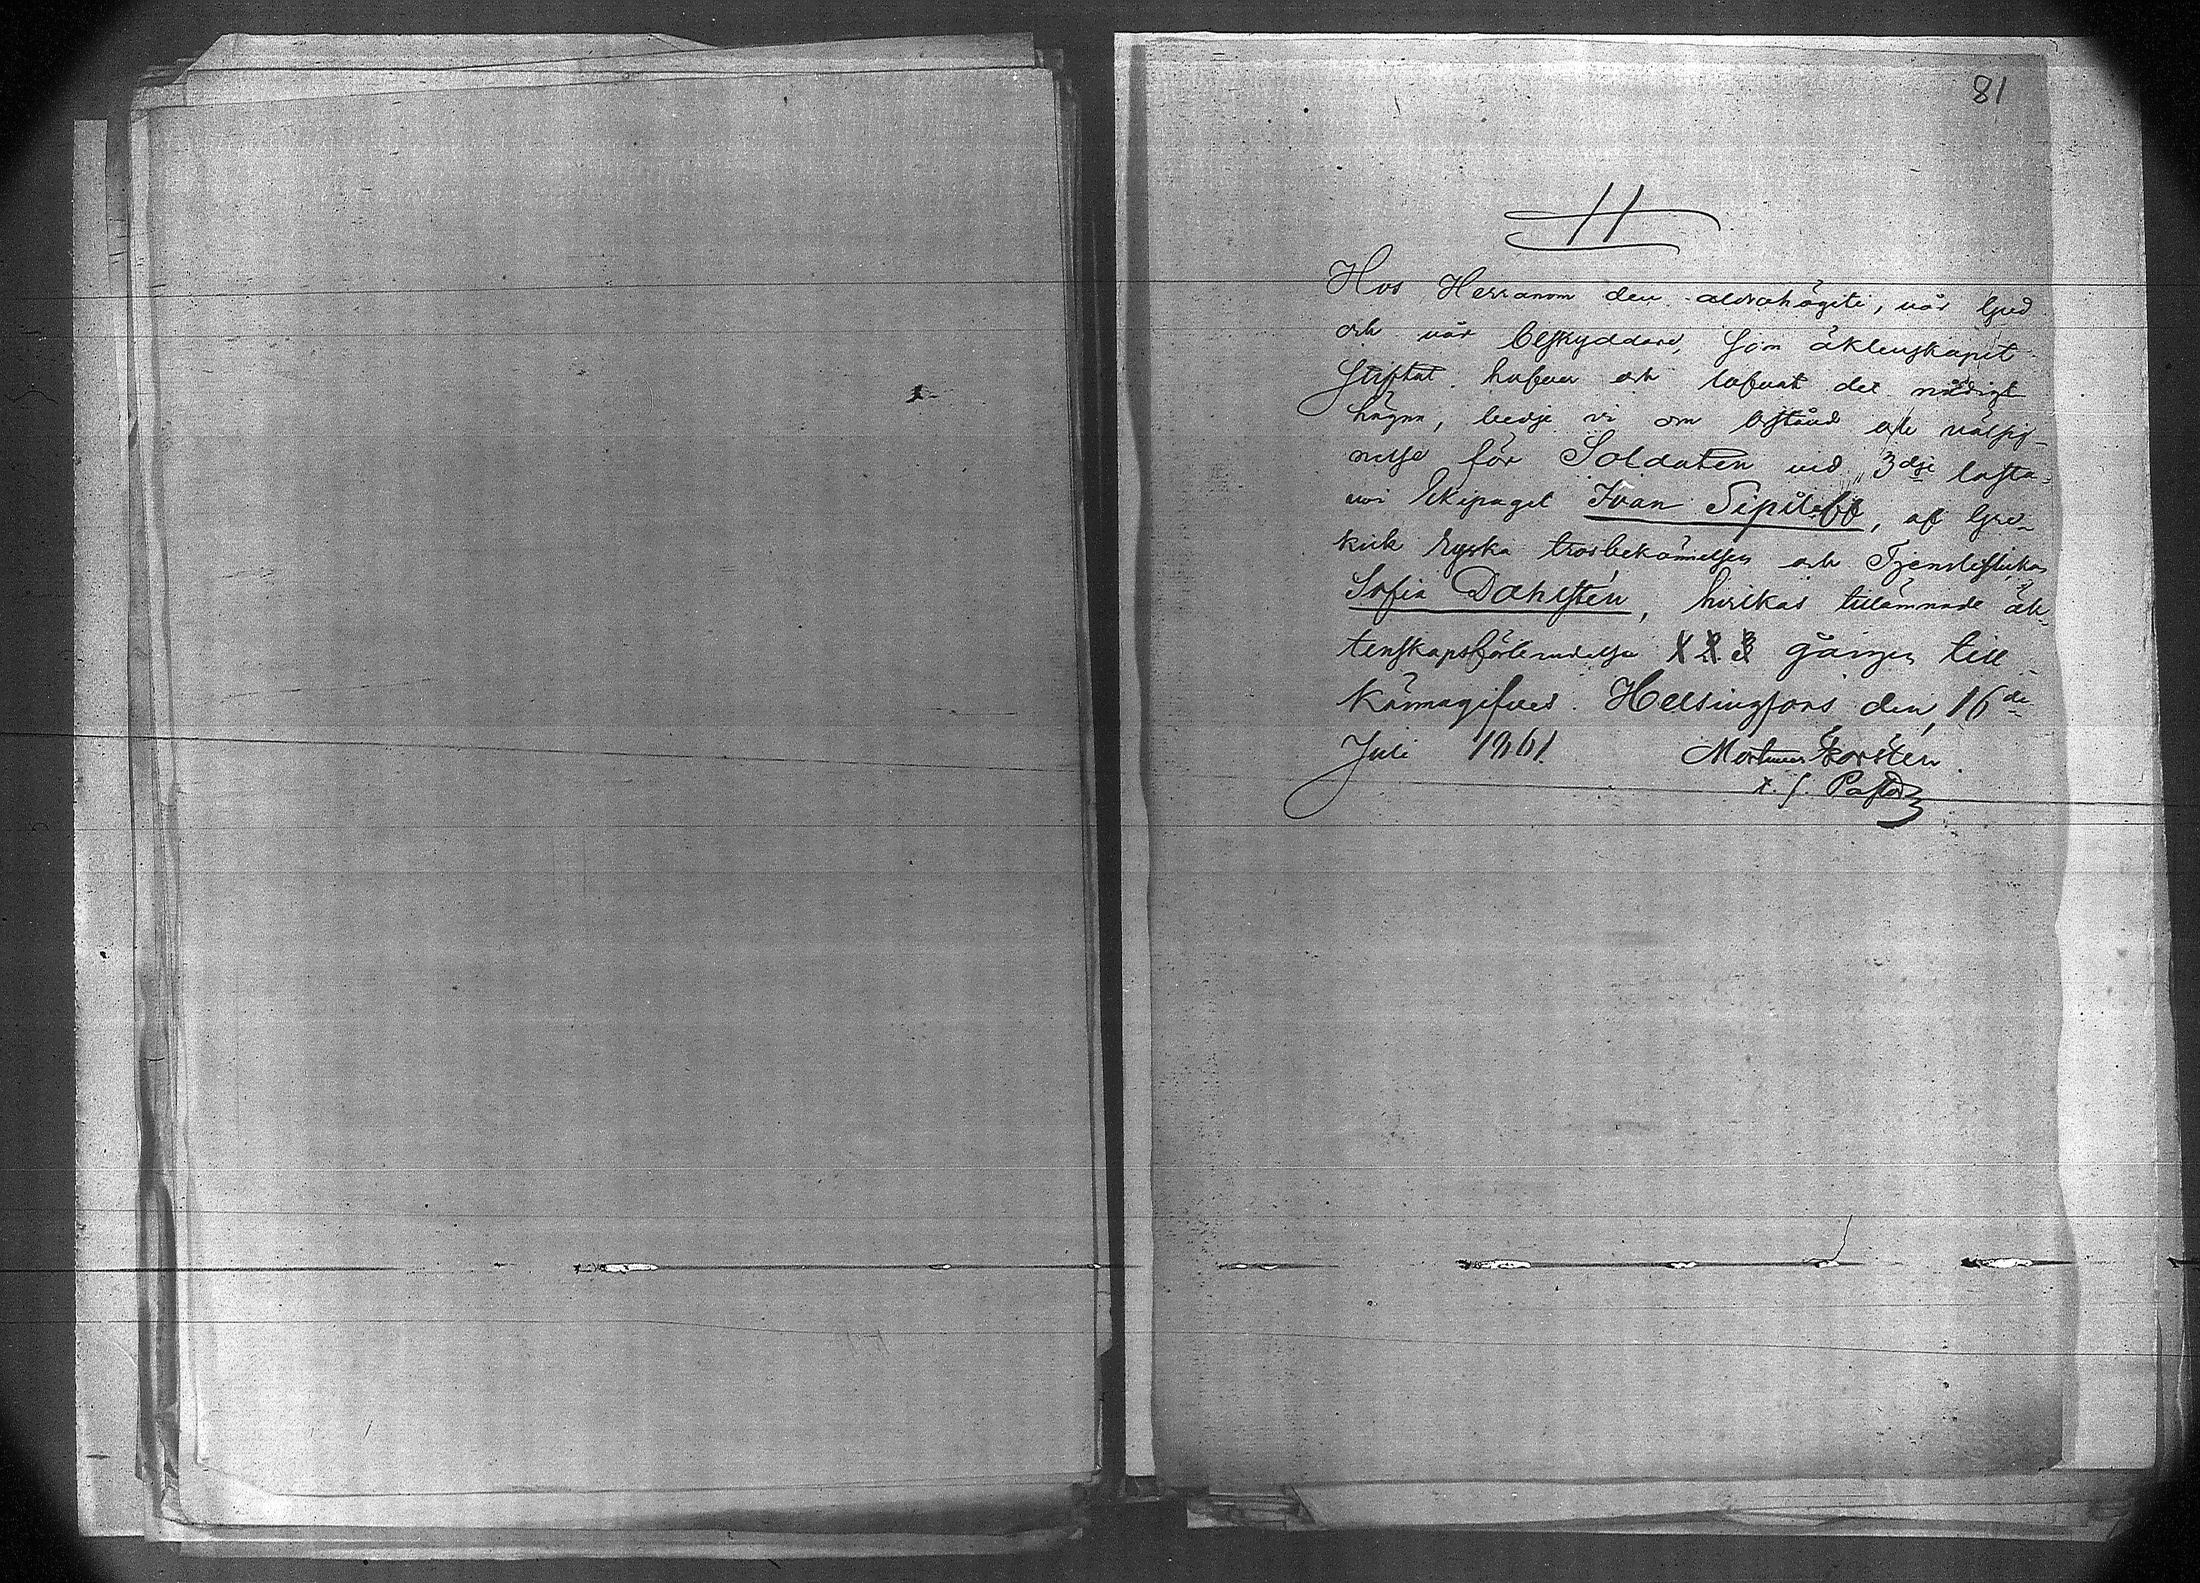 81
11
Hos Herranom den aldrahögste, vår Gud
och vår beskyddare, som äktenskapet
stiftat hafver och lofvat det nådigt
hägna, bedje vi om bistånd och välsig-
nelse för Soldaten vid 3dje lasta-
voi Ekipaget Ivan Sipiloff, af Gre-
kisk ryska trosbekännelsen och Tjensteflickan
Sofia Dahlstén, hvilkas tillämnade äk-
tenskapsförbindelse 1 2 3 gången till-
kännagifves. Helsingfors den 16de
Juli 1861. Mortimer Forstén
t. f. Pastor